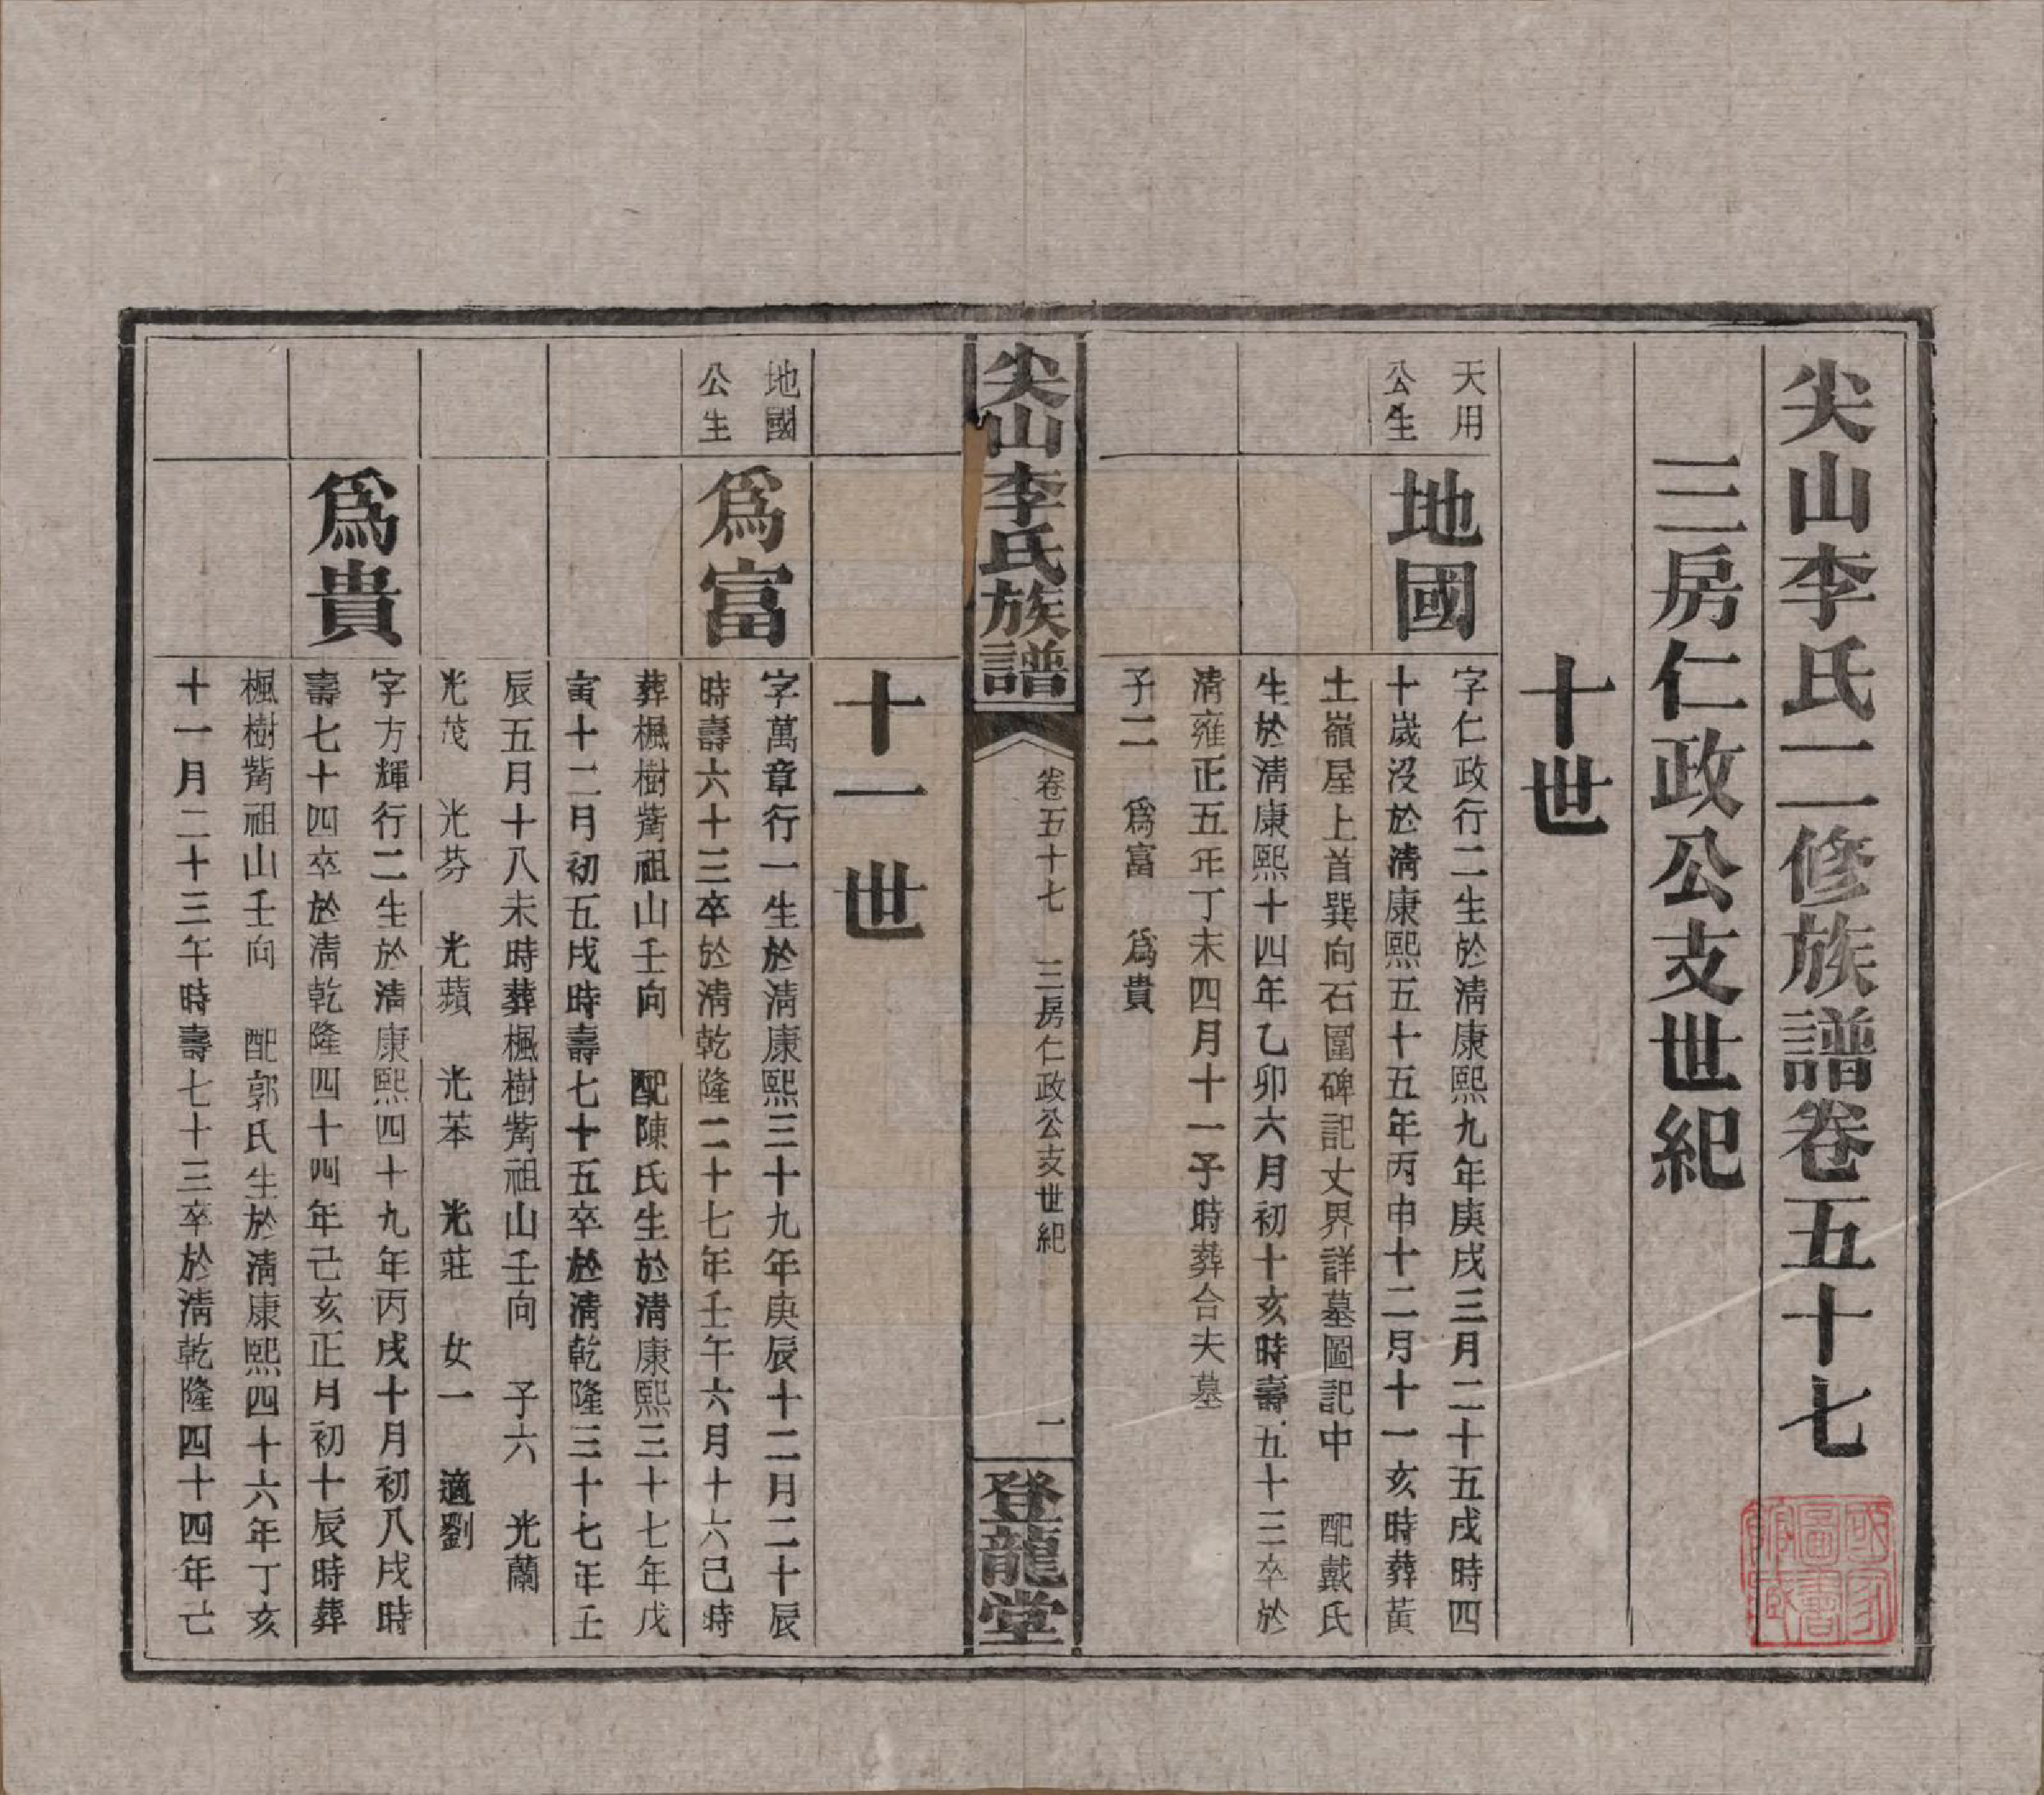 尖山李氏二修族譜卷五十七
三房仁政公支世紀
十世
天用
公生
地國
字仁政行二生於淸康熙九年庚戌三月二十五戌時四
十歲沒於淸康熙五十五年丙申十二月十一亥時葬黃
土嶺屋上首巽向石圍碑記丈界詳墓圖記中 配戴氏
生於淸康熙十四年乙卯六月初十亥時壽五十三卒於
淸雍正五年丁未四月十一子時葬合夫墓
子二 爲富 爲貴
尖山李氏族譜
卷五十七 三房仁政公支世紀
一
登龍堂
十一世
地國
公生
爲富
字萬章行一生於淸康熙三十九年庚辰十二月二十辰
時壽六十三卒於淸乾隆二十七年壬午六月十六巳時
葬楓樹觜祖山壬向 配陳氏生於淸康熙三十七年戊
寅十二月初五戌時壽七十五卒於淸乾隆三十七年壬
辰五月十八未時葬楓樹觜祖山壬向 子六 光蘭
光茂 光芬 光蘋 光苯 光莊 女一 適劉
爲貴
字方輝行二生於淸康熙四十九年丙戌十月初八戌時
壽七十四卒於淸乾隆四十四年己亥正月初十辰時葬
楓樹觜祖山壬向 配郭氏生於淸康熙四十六年丁亥
十一月二十三午時壽七十三卒於淸乾隆四十四年己
國家
圖書
館藏